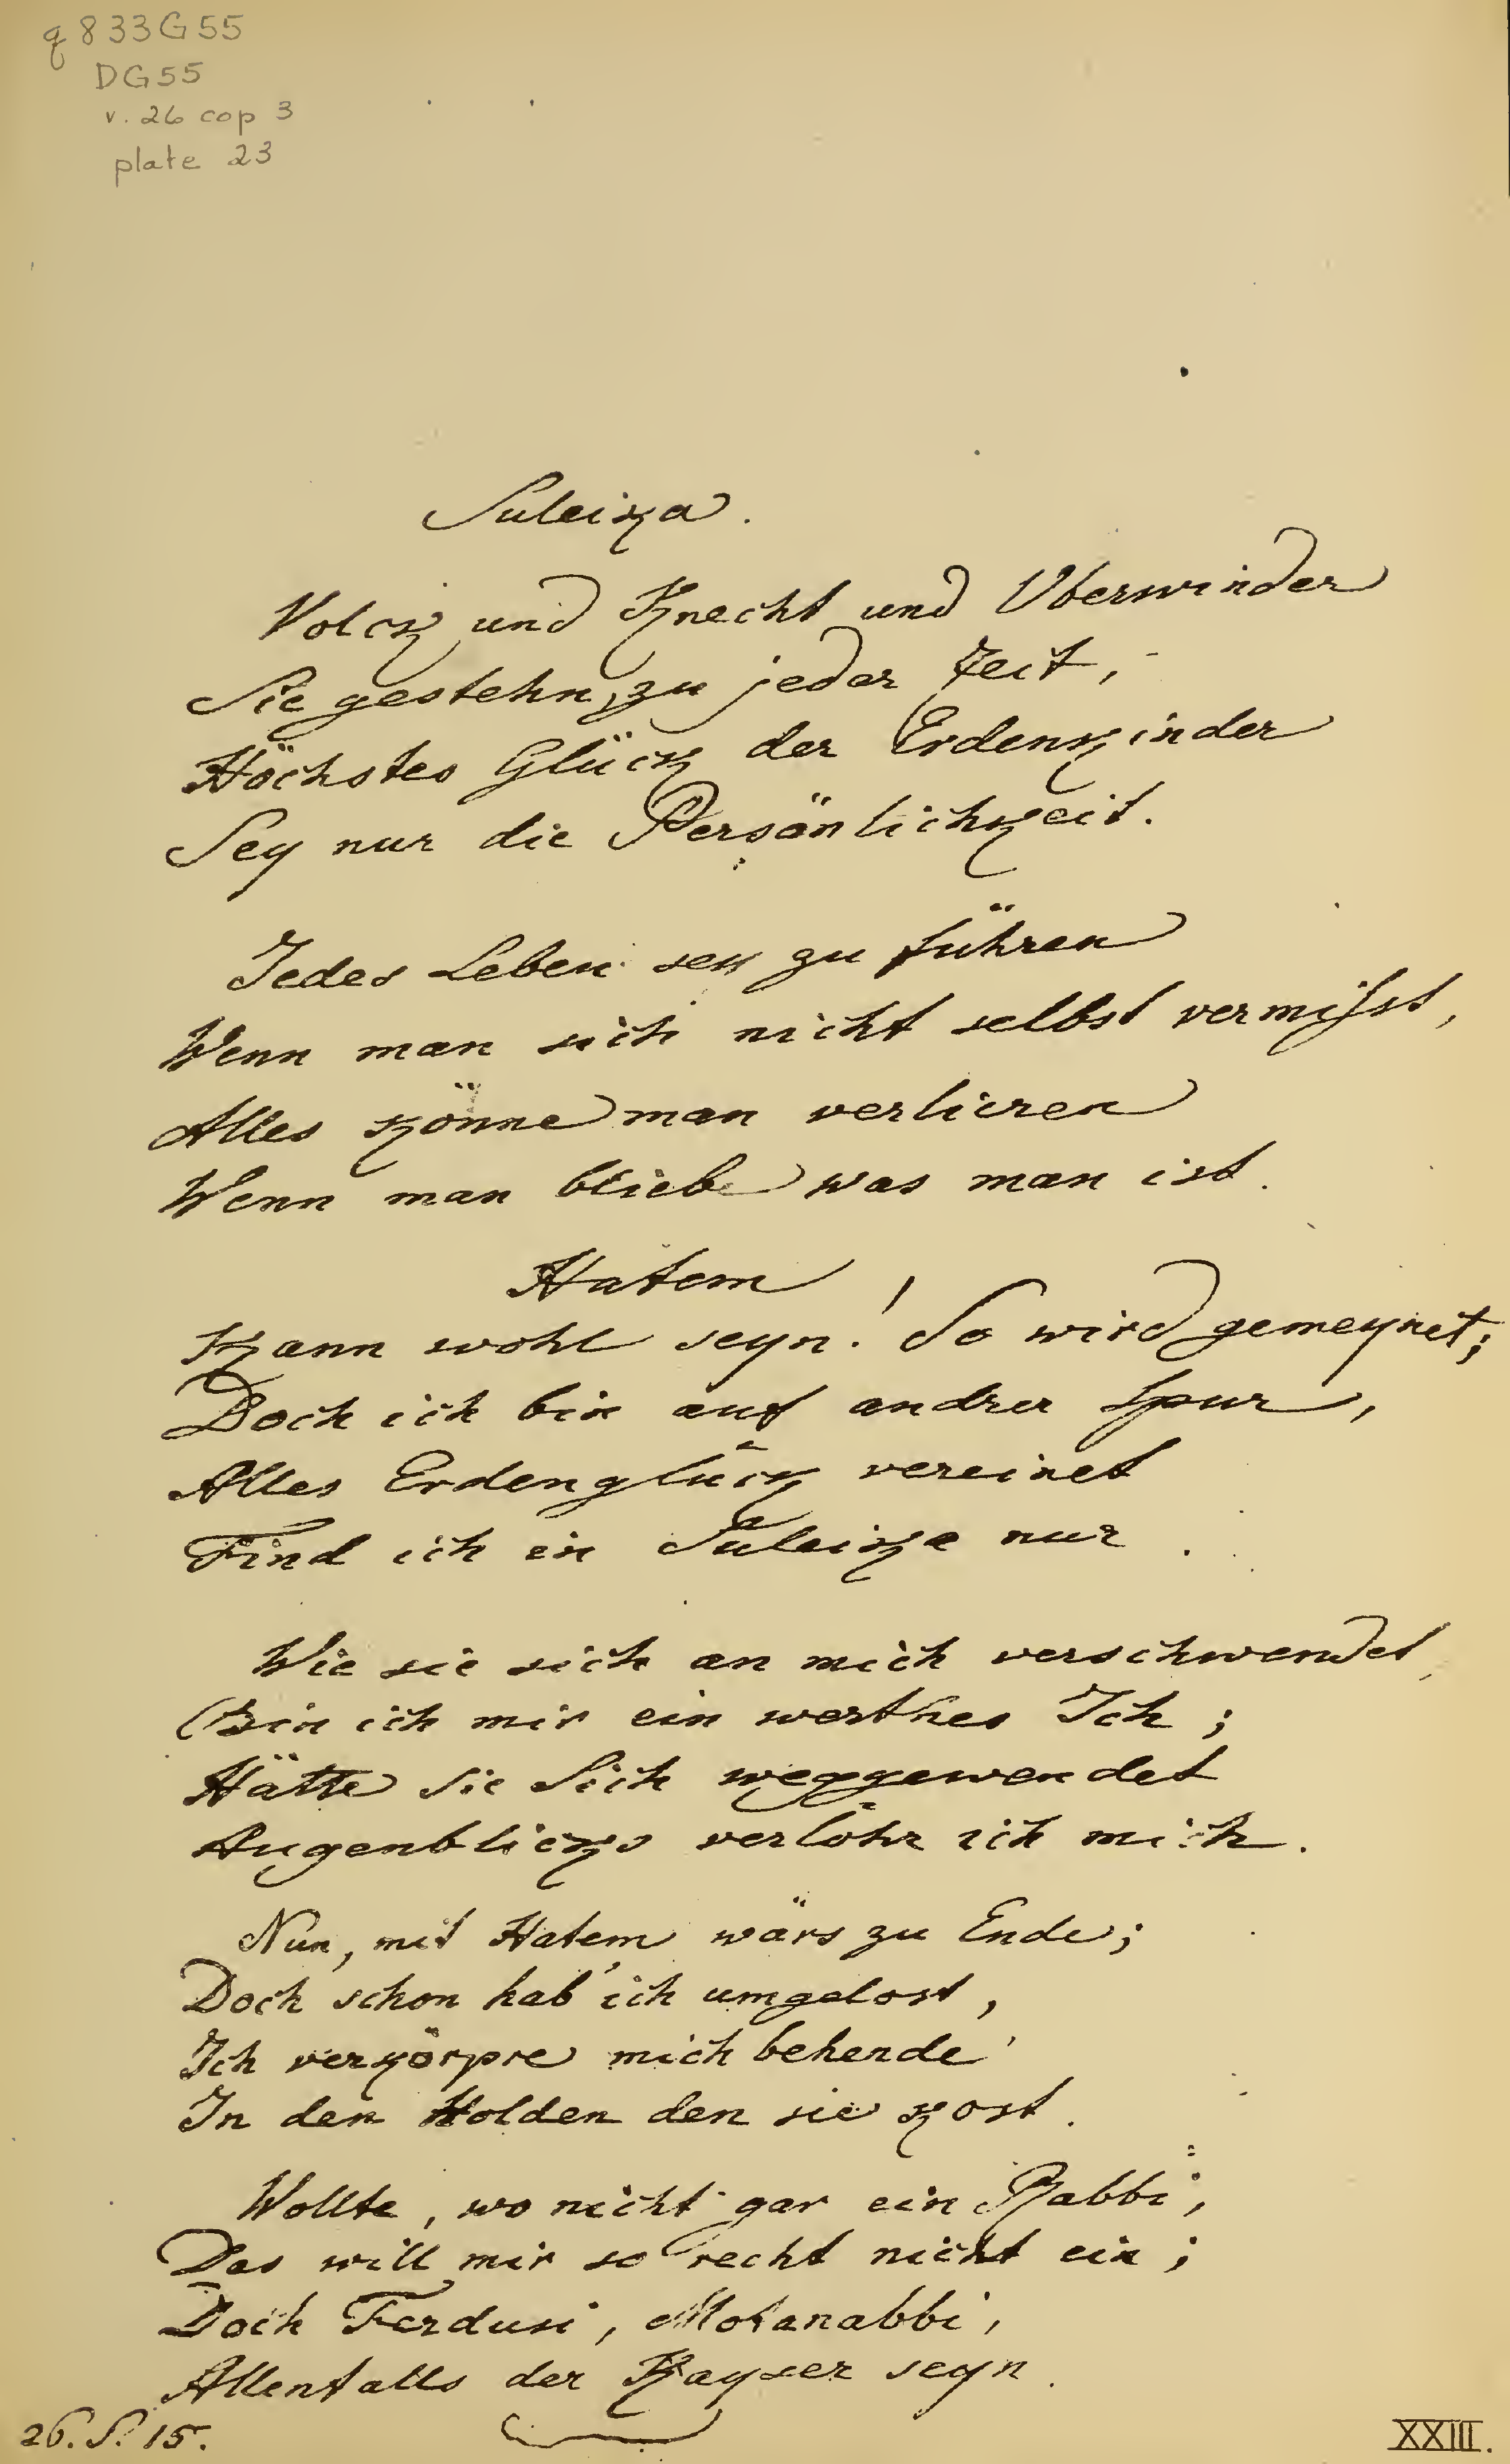 q833G55
DG55
v. 26 cop 3
plate 23
Suleika.
Volck und Knecht und Uberwinder
Sie gestehn, zu jeder Zeit,
Höchstes Glück der Erdenkinder
Sey nur die Persönlichkeit.
Jedes Leben sey zu führen
Wenn man sich nicht selbst vermisst,
Alles könne man verlieren
Wenn man bliebe was man ist.
Hatem
Kann wohl seyn! So wird gemeynet;
Doch ich bin auf andrer Spur,
Alles Erdenglück vereinet
Find ich in Suleika nur.
Wie sie sich an mich verschwendet,
Bin ich mir ein werthes Ich;
Hätte sie sich weggewendet
Augenblicks verlöhr ich mich.
Nun, mit Hatem wärs zu Ende;
Doch schon hab' ich umgelost,
Ich verkörpre mich behende
In den Holden den sie kost.
Wollte, wo nicht gar ein Rabbi,
Das will mir so recht nicht ein;
Doch Ferdusi, Motanabbi,
Allenfalls der Kayser seyn.
26. S. 15.
XXIII.